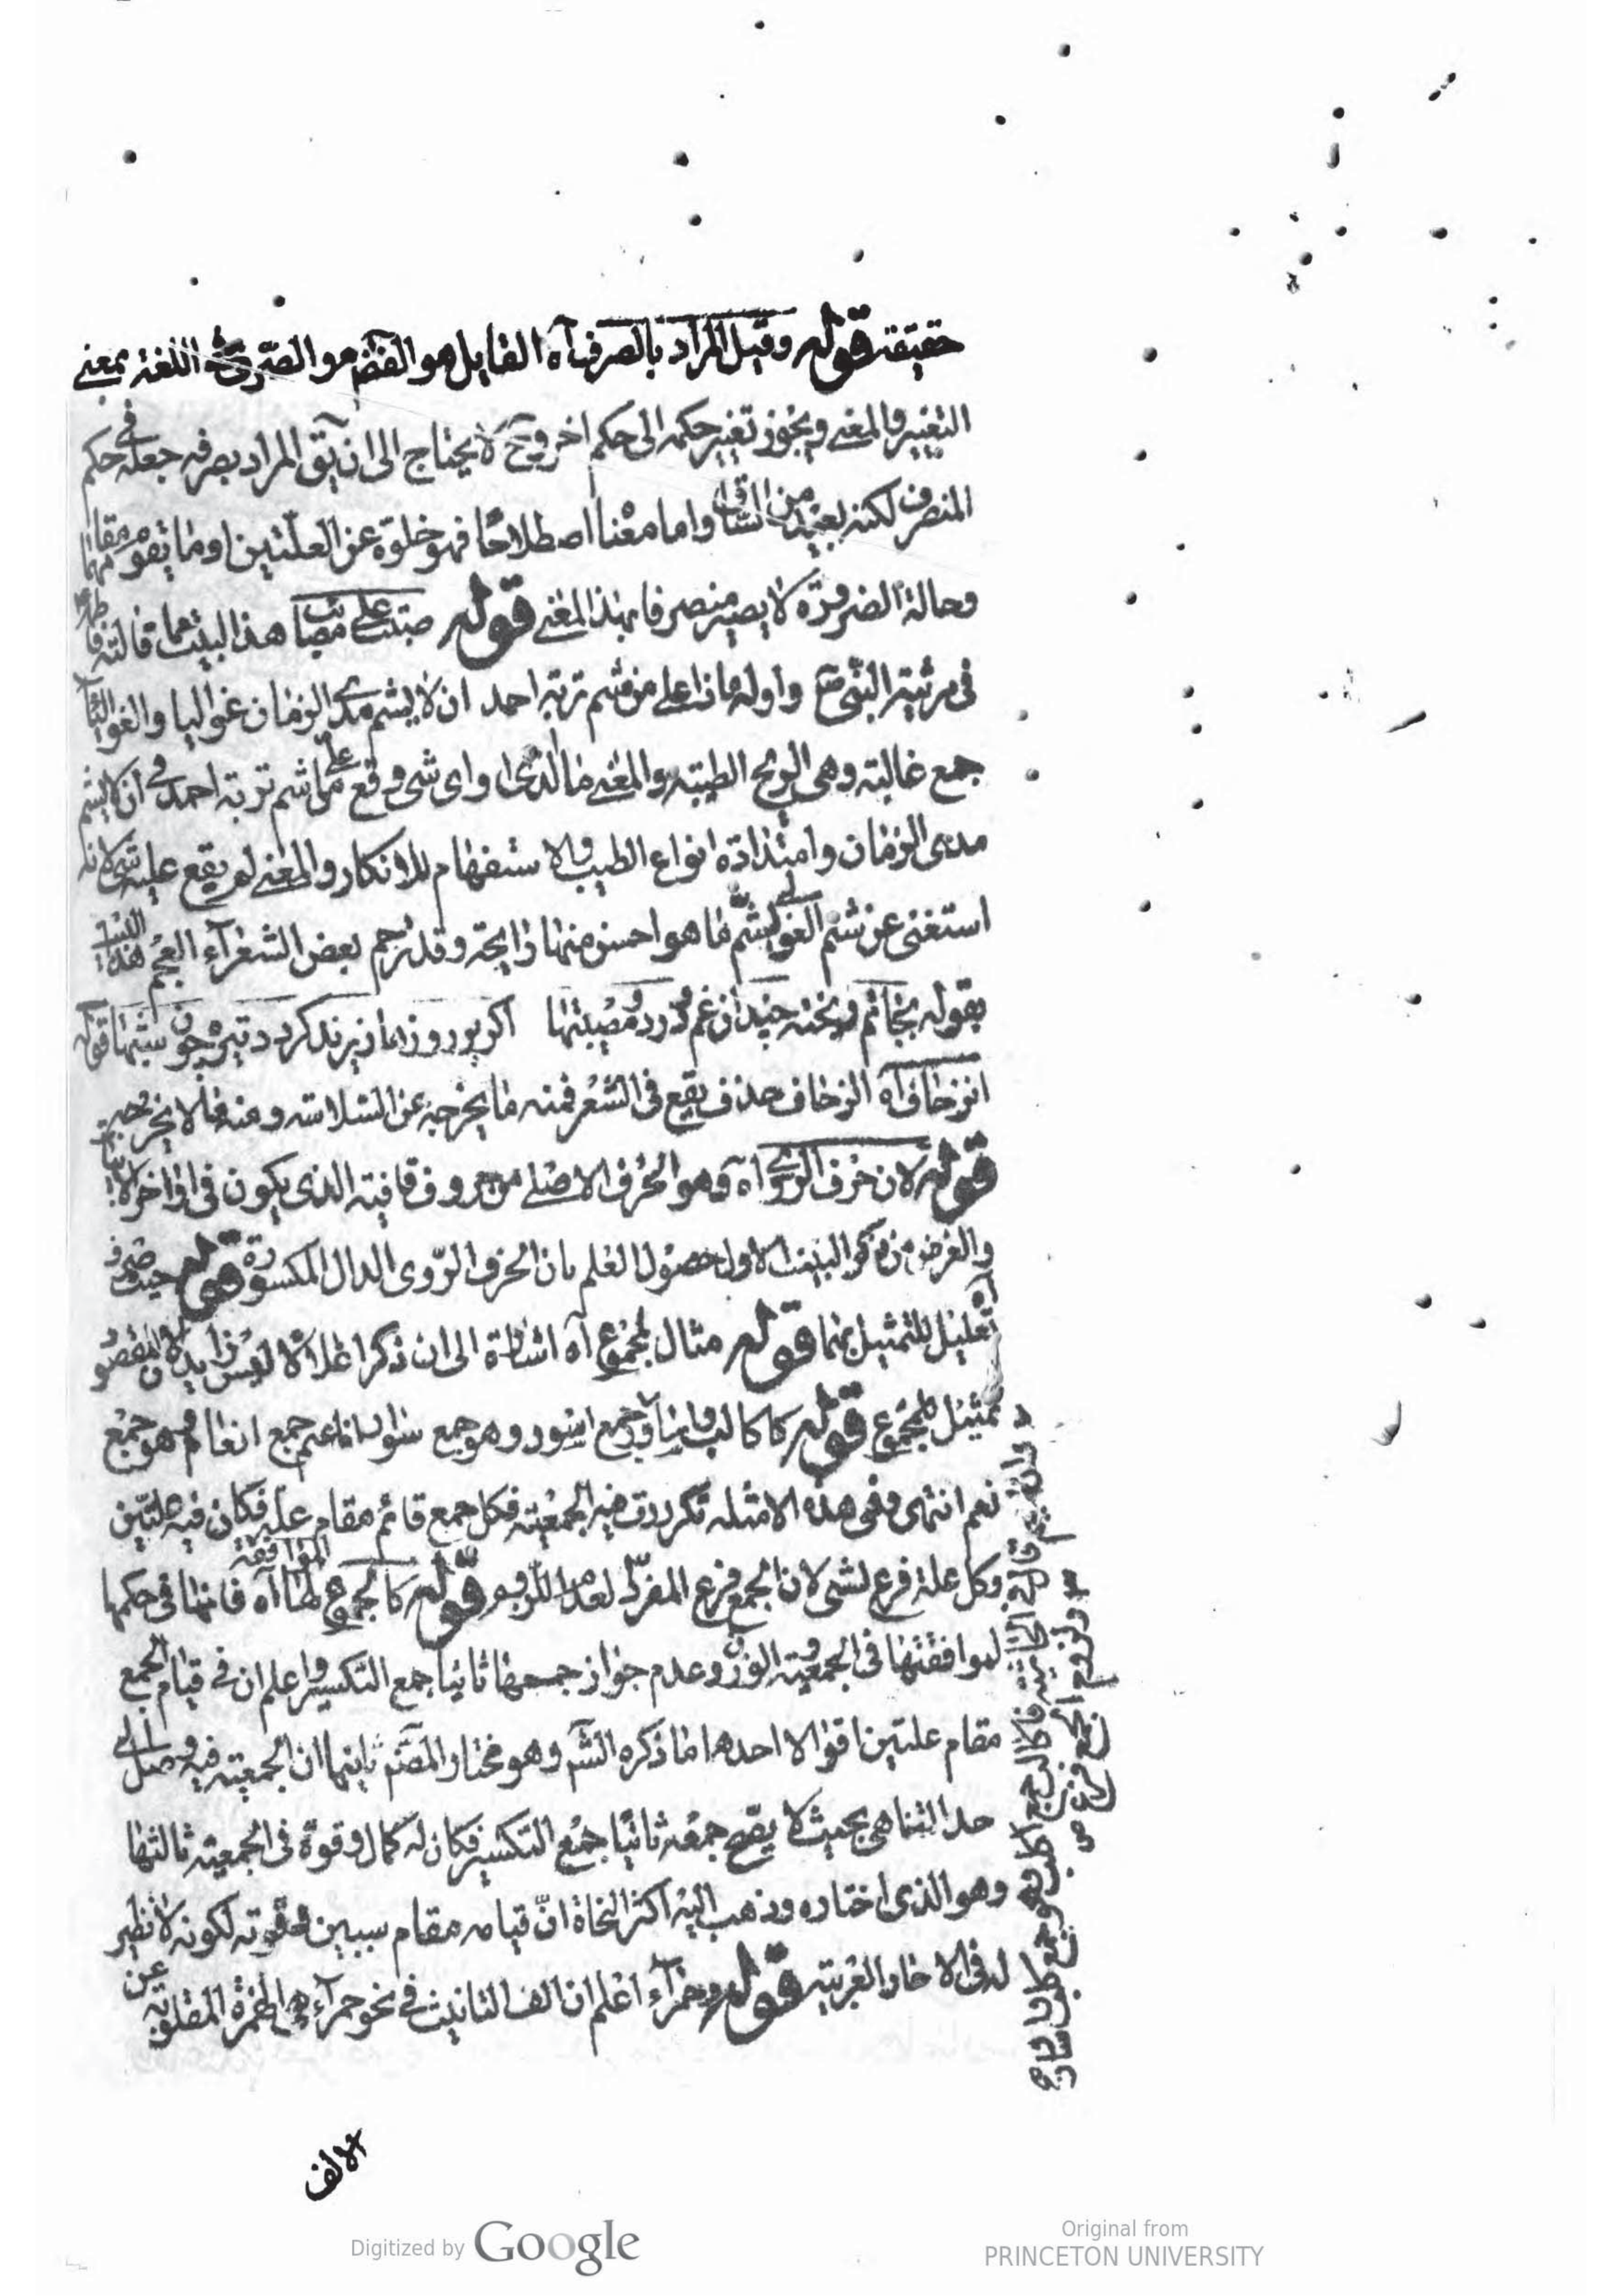 حقيقته قوله وقيل المراد بالصرف آه القايل هو الفقير هو الصرف في اللغة بمعنى
التغيير والمعنى ويجوز تغيير حكمه الى حكم اخر وح لا يحتاج الى ان يق المراد بصرفه جعله في حكم
المنصرف لكنه بعيد من السياق واما معناه اصطلاحًا فهو خلوه عن العلتين او ما يقوم مقامهما
وحالة الضرورة لا يصير منصرفا بهذا المعنى قوله صبت على مصائب هذا البيت مما قالته فاطمة
فى مرثية النبي ص واوله ماذا على من شم تربة احمد ان لا يشم مدى الزمان غواليا والغوالي
جمع غالية وهى الريح الطيبة والمعنى ما الذى او اى شى وقع على من شم تربة احمد في ان لا يشم
مدى الزمان وامتداده انواع الطيب والاستفهام للانكار والمعنى لم يقع عليه شى لانه
استغنى عن شم الغوالي لشم ما هو احسن منها رايحة وقد ترجم بعض الشعراء العجم هذا البيت
بقوله بجانم ريخته چندان غم و درد و مصيبتها اكر بر روزها ريزند كردد تيره چون شبها قوله
انزحاف آه الزحاف حذف يقع فى الشعر فمنه ما يخرجه عن السلاسة ومنه ما لا يخرجه
قوله لان حرف الروي آه وهو الحرف الاصلى من حروف قافيته الذى يكون فى اواخر الابيات
والغرض من ذكر البيت الاول حصول العلم بان الحرف الروى الدال المكسورة قوله حيث صرف
آه تعليل للتمثيل بهما قوله مثال لمجموع آه اشارة الى ان ذكر اعلالا ليس زايدا لان المقصود
تمثيل المجموع قوله كاكالب واساور جمع اسورة وهو جمع سوار اناعم جمع انعام وهو جمع
نعم انتهى وفى هذه الامثله تكررت فيه الجمعية فكل جمع قائم مقام علة فكان فيه علتين
وكل علة فرع لشى لان الجمع فرع المفرد قوله كالجموع الموافقة لها آه فانها فى حكمها
لموافقتها فى الجمعية والوزن وعدم جواز جمعها ثانيا جمع التكسير واعلم ان في قيام الجمع
مقام علتين اقوالا احدها ما ذكره الش وهو مختار المصنف ثانيها ان الجمعية فيه وصل الى
حد التناهى بحيث لا يصح جمعه ثانيًا جمع التكسير فكان له كمال وقوة فى الجمعية ثالثها
وهو الذى اختاره وذهب اليه اكثر النحاة ان قيامه مقام سببين لقوته لكونه لا نظير
له فى الاحاد العربية قوله وحمراء اعلم ان الف التانيث في نحو حمراء هي الهمزة المقلوبة عن
الالف
Digitized by Google
Original from
PRINCETON UNIVERSITY